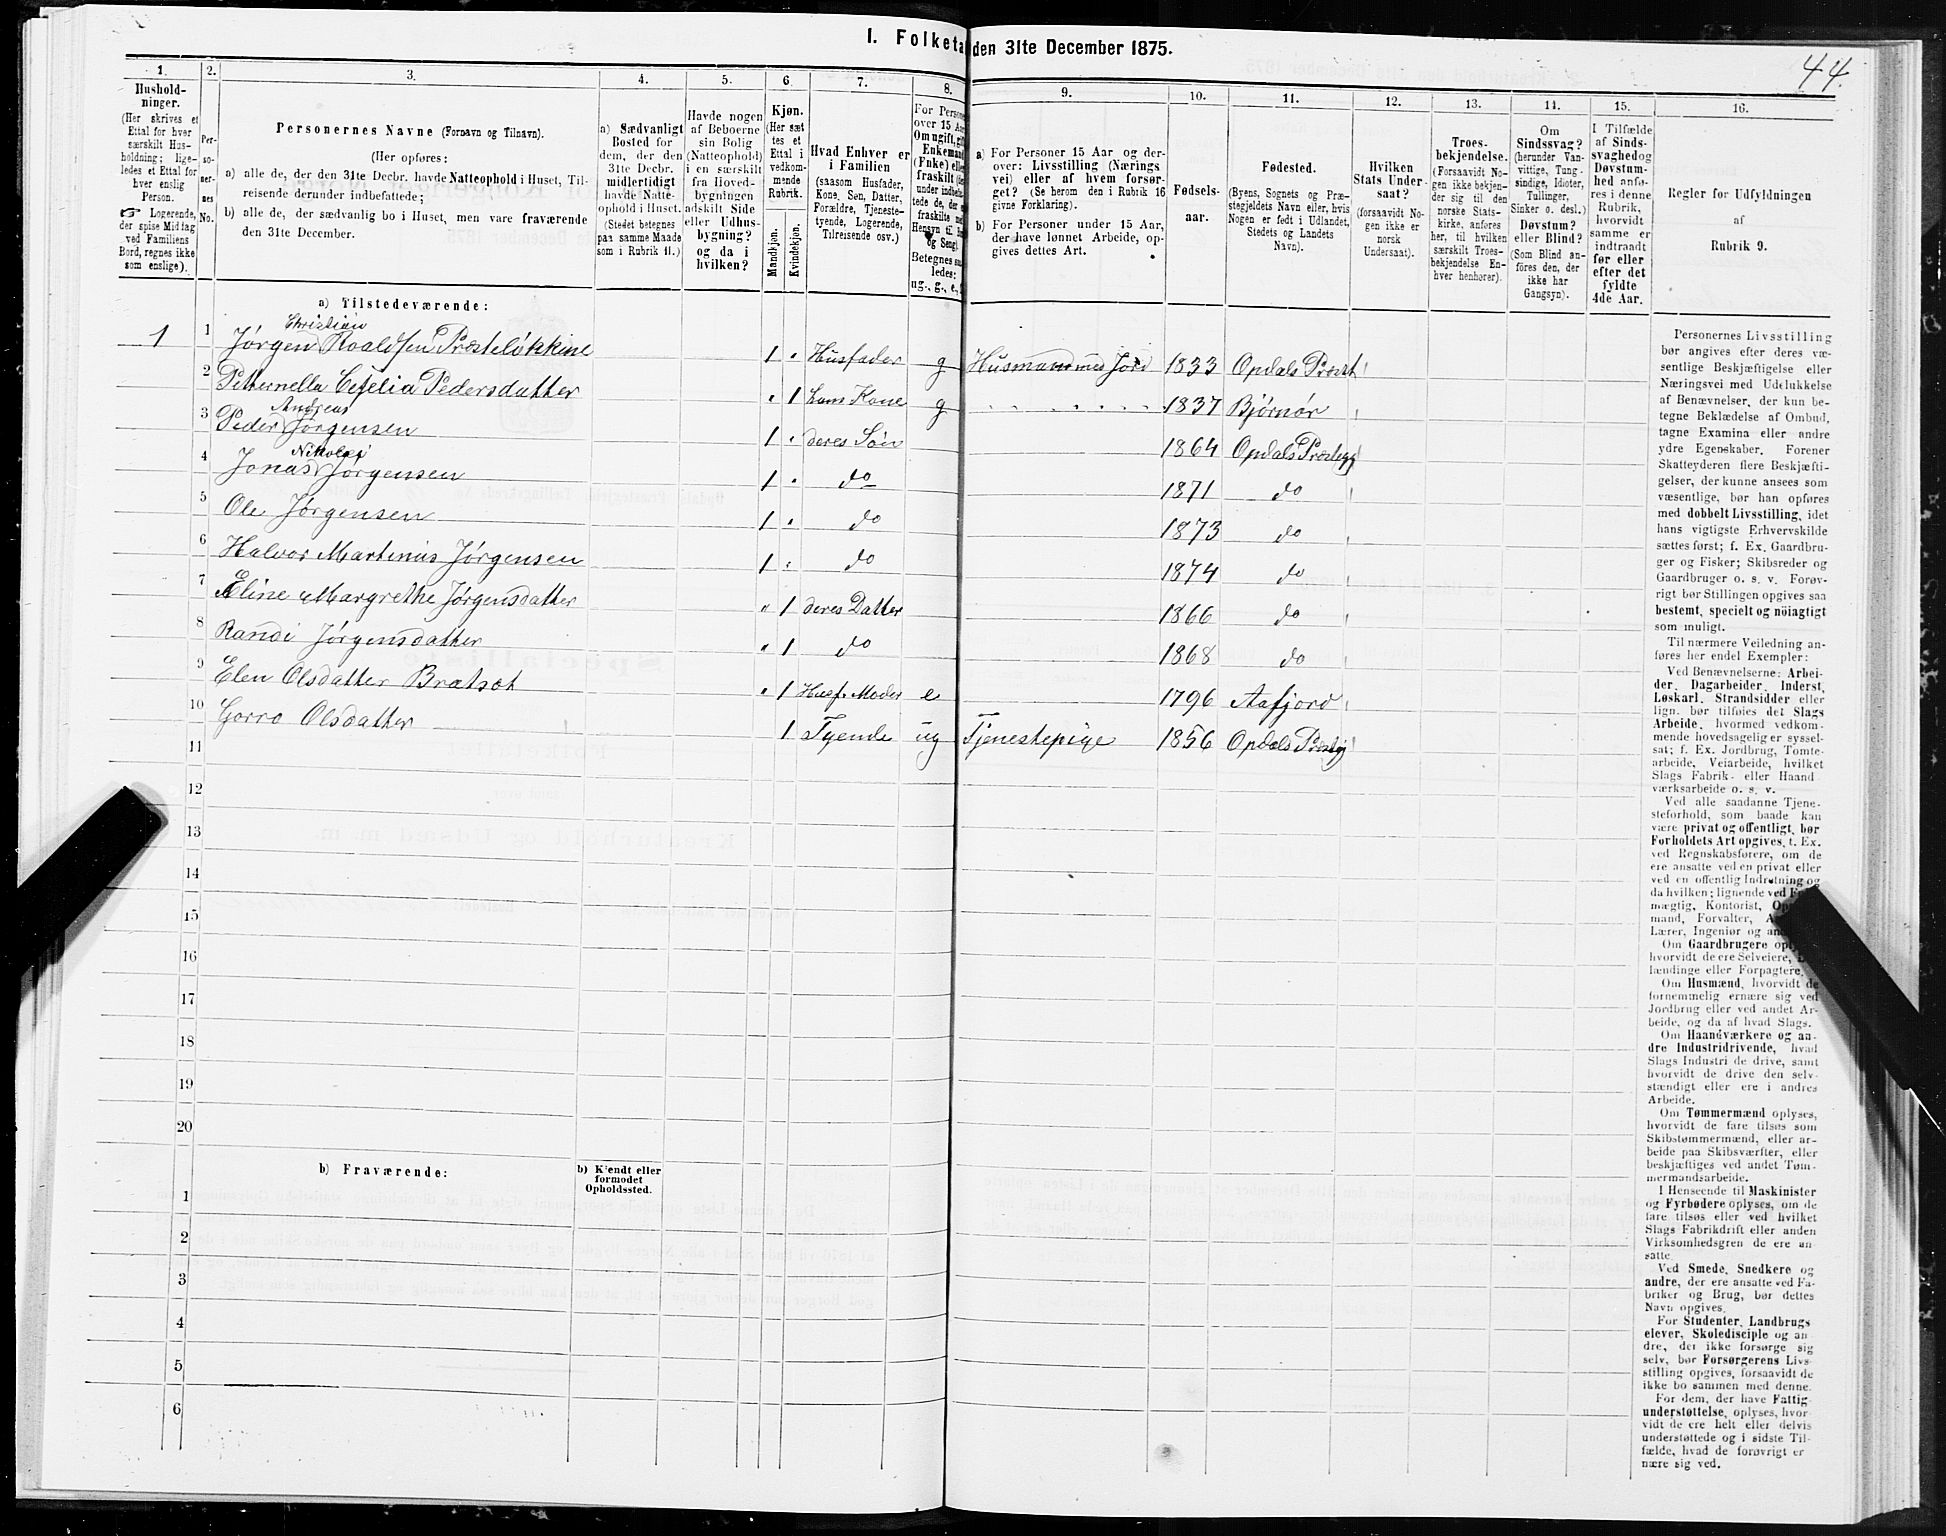 I. Folketa den 31te December 1875.
44.
1. 2. 3. 4. 5. 6. 7. 8. 9. 10. 11. 12. 13. 14. 15. 16.
Hushold-
ninger.
(Her skrives et
Ettal for hver
særskilt Hus-
holdning; lige-
ledes et Ettal for
hver enslig
Person.
☞ Logerende,
der spise Middag
ved Familiens
Bord, regnes ikke
som enslige).
Per-
so-
ner-
nes
No.
Personernes Navne (Fornavn og Tilnavn).
(Her opføres:
a) alle de, der den 31te Decbr. havde Natteophold i Huset, Til-
reisende derunder indbefattede;
b) alle de, der sædvanlig bo i Huset, men vare fraværende
den 31te December.
a) Sædvanligt
Bosted for
dem, der den
31te Decbr.
midlertidigt
havde Natte-
ophold i Huset.
(Stedet betegnes
paa samme Maade
som i Rubrik 11.)
Havde nogen
af Beboerne
sin Bolig
(Natteophold)
i en særskilt
fra Hoved-
bygningen
adskilt Side
eller Udhus-
bygning?
og da i
hvilken?
Kjøn.
(Her sæt-
tes et
Ettal i
vedkom-
mende
Rubrik.
Mandkjøn.
Kvindekjøn.
Hvad Enhver er
i Familien
(saasom Husfader,
Kone, Søn, Datter,
Forældre, Tjeneste-
tyende, Logerende,
Tilreisende osv.)
For Person
over 15 Aar
Om ugift, gift
Enkemand
(Enke) eller
fraskilt
ug., g., e.,
a) For Personer 15 Aar og der-
over: Livsstilling (Nærings
vei) eller af hvem forsør-
get? (Se herom den i Rubrik 16
givne Forklaring).
b) For Personer under 15 Aar,
der have lønnet Arbeide, op-
gives dettes Art.
Fødsels-
aar.
Fødested.
(Byens, Sognets og Præ-
stegjeldets Navn eller, hvis
Nogen er født i Udlandet,
Stedets og Landets
Navn).
Hvilken
Stats Under-
saat?
(forsaavidt No-
gen ikke er
norsk
Undersaat).
Troes-
bekjendelse.
(Forsaavidt No-
gen ikke bekjen-
der sig til den
norske Stats-
kirke, anføres
her, til hvilken
særskilt Troes-
bekjendelse En-
hver henhører).
Om
Sindssvag?
(herunder Van-
vittige, Tung-
sindige, Idioter,
Tullinger,
Sinker o. desl.)
Døvstum?
eller Blind?
(Som Blind an-
føres den, der
ikke har
Gangsyn).
I Tilfælde
af Sinds-
svaghed og
Døvstum-
hed anfø-
res i denne
Rubrik,
hvorvidt
samme er
indtraadt
før eller
efter det
fyldte
4de Aar.
Regler for Udfyldningen
af
Rubrik 9.
a) Tilstedeværende:
Christian
1 1 Jørgen Roaldsen Præsteløkkine 1 Husfader g Husmand med Jord 1833 Opdals Præst
2 Petternella Cecelia Pedersdatter 1 hans Kone g 1837 Bjørnør
Andreas
3 Peder Jørgensen 1 deres Søn 1864 Opdals Præstegj
Nikolai
4 Jonas Jørgensen 1 do 1871 do
5 Ole Jørgensen 1 do 1873 do
6 Halvor Martinus Jørgensen 1 do 1874 do
7 Eline Margrethe Jørgensdatter 1 deres Datter 1866 do
8 Randi Jørgensdatter 1 do 1868 do
9 Elen Olsdatter Brætsot 1 Husf. Moder e 1796 Aafjord
10 Gorro Olsdatter 1 Tyende ug Tjenestepige 1856 Opdals Præstgj
11
12
13
14
15
16
17
18
19
20
b) Fraværende:
b) Kjendt eller
formodet
Opholdssted.
1
2
3
4
5
6
Personernes Livsstilling
bør angives efter deres væ-
sentlige Beskjæftigelse eller
Næringsvei med Udelukkelse
af Benævnelser, der kun be-
tegne Beklædelse af Ombud,
tagne Examina eller andre
ydre Egenskaber. Forener
Skatteyderen flere Beskjæfti-
gelser, der kunne ansees som
væsentlige, bør han opføres
med dobbelt Livsstilling, idet
hans vigtigste Erhvervskilde
sættes først; f. Ex. Gaardbru-
ger og Fisker; Skibsreder og
Gaardbruger o. s. v. Forøv-
rigt bør Stillingen opgives saa
bestemt, specielt og nöiagtigt
som muligt.
Til nærmere Veiledning an-
føres her endel Exempler:
Ved Benævnelserne: Arbei-
der, Dagarbeider, Inderst,
Løskarl, Strandsidder eller
lign. bør tilføies det Slags
Arbeide, hvormed vedkom-
mende hovedsagelig er syssel-
sat; f. Ex. Jordbrug, Tomte-
arbeide, Veiarbeide, hvilket
Slags Fabrik- eller Haand-
værksarbeide o. s. v.
Ved alle saadanne Tjene-
steforhold, som baade kan
være privat og offentligt, bør
Forholdets Art opgives, t. Ex.
ved Regnskabsførere, om de
ere ansatte ved en privat eller
ved en offentlig Indretning og
da hvilken; lignende ved
mægtig, Kontorist,
mand, Forvalter,
Lærer, Ingeniør og
Om Gaardbrugere
hvorvidt de ere Selveiere,
lændinge eller Forpagtere.
Om Husmænd, hvorvidt de
fornemmelig ernære sig ved
Jordbrug eller ved andet Ar-
beide, og da af hvad Slags.
Om Haandværkere og an-
dre Industridrivende, hvad
Slags Industri de drive, samt
hvorvidt de drive den selv-
stændigt eller ere i andres
Arbeide.
Om Tømmermænd oplyses,
hvorvidt de fare tilsøs som
Skibstømmermænd, eller ar-
beide paa Skibsværfter, eller
beskjæftiges ved andet Tøm-
mermandsarbeide.
I Henseende til Maskinister
og Fyrbødere oplyses, om de
fare tilsøs eller ved hvilket
Slags Fabrikdrift eller anden
Virksomhedsgren de ere an-
satte.
Ved Smede, Snedkere og
andre, der ere ansatte ved Fa-
briker og Brug, bør dettes
Navn opgives.
For Studenter, Landbrugs
elever, Skoledisciple og an-
dre, der ikke forsørge sig
selv, bør Forsørgerens Livs-
stilling opgives, forsaavidt de
ikke bo sammen med denne.
For dem, der have Fattig-
understøttelse, oplyses, hvor-
vidt de ere helt eller delvis
understøttede og i sidste Til-
fælde, hvad de forøvrigt er
nære sig ved.